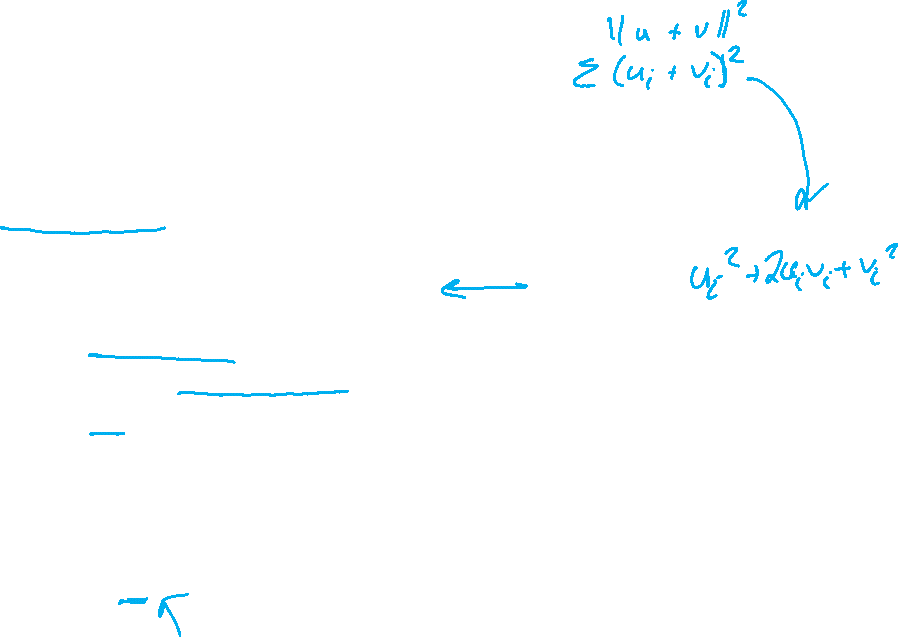 ||u + v||²
Σ (uᵢ + vᵢ)²
uᵢ² + 2uᵢvᵢ + vᵢ²